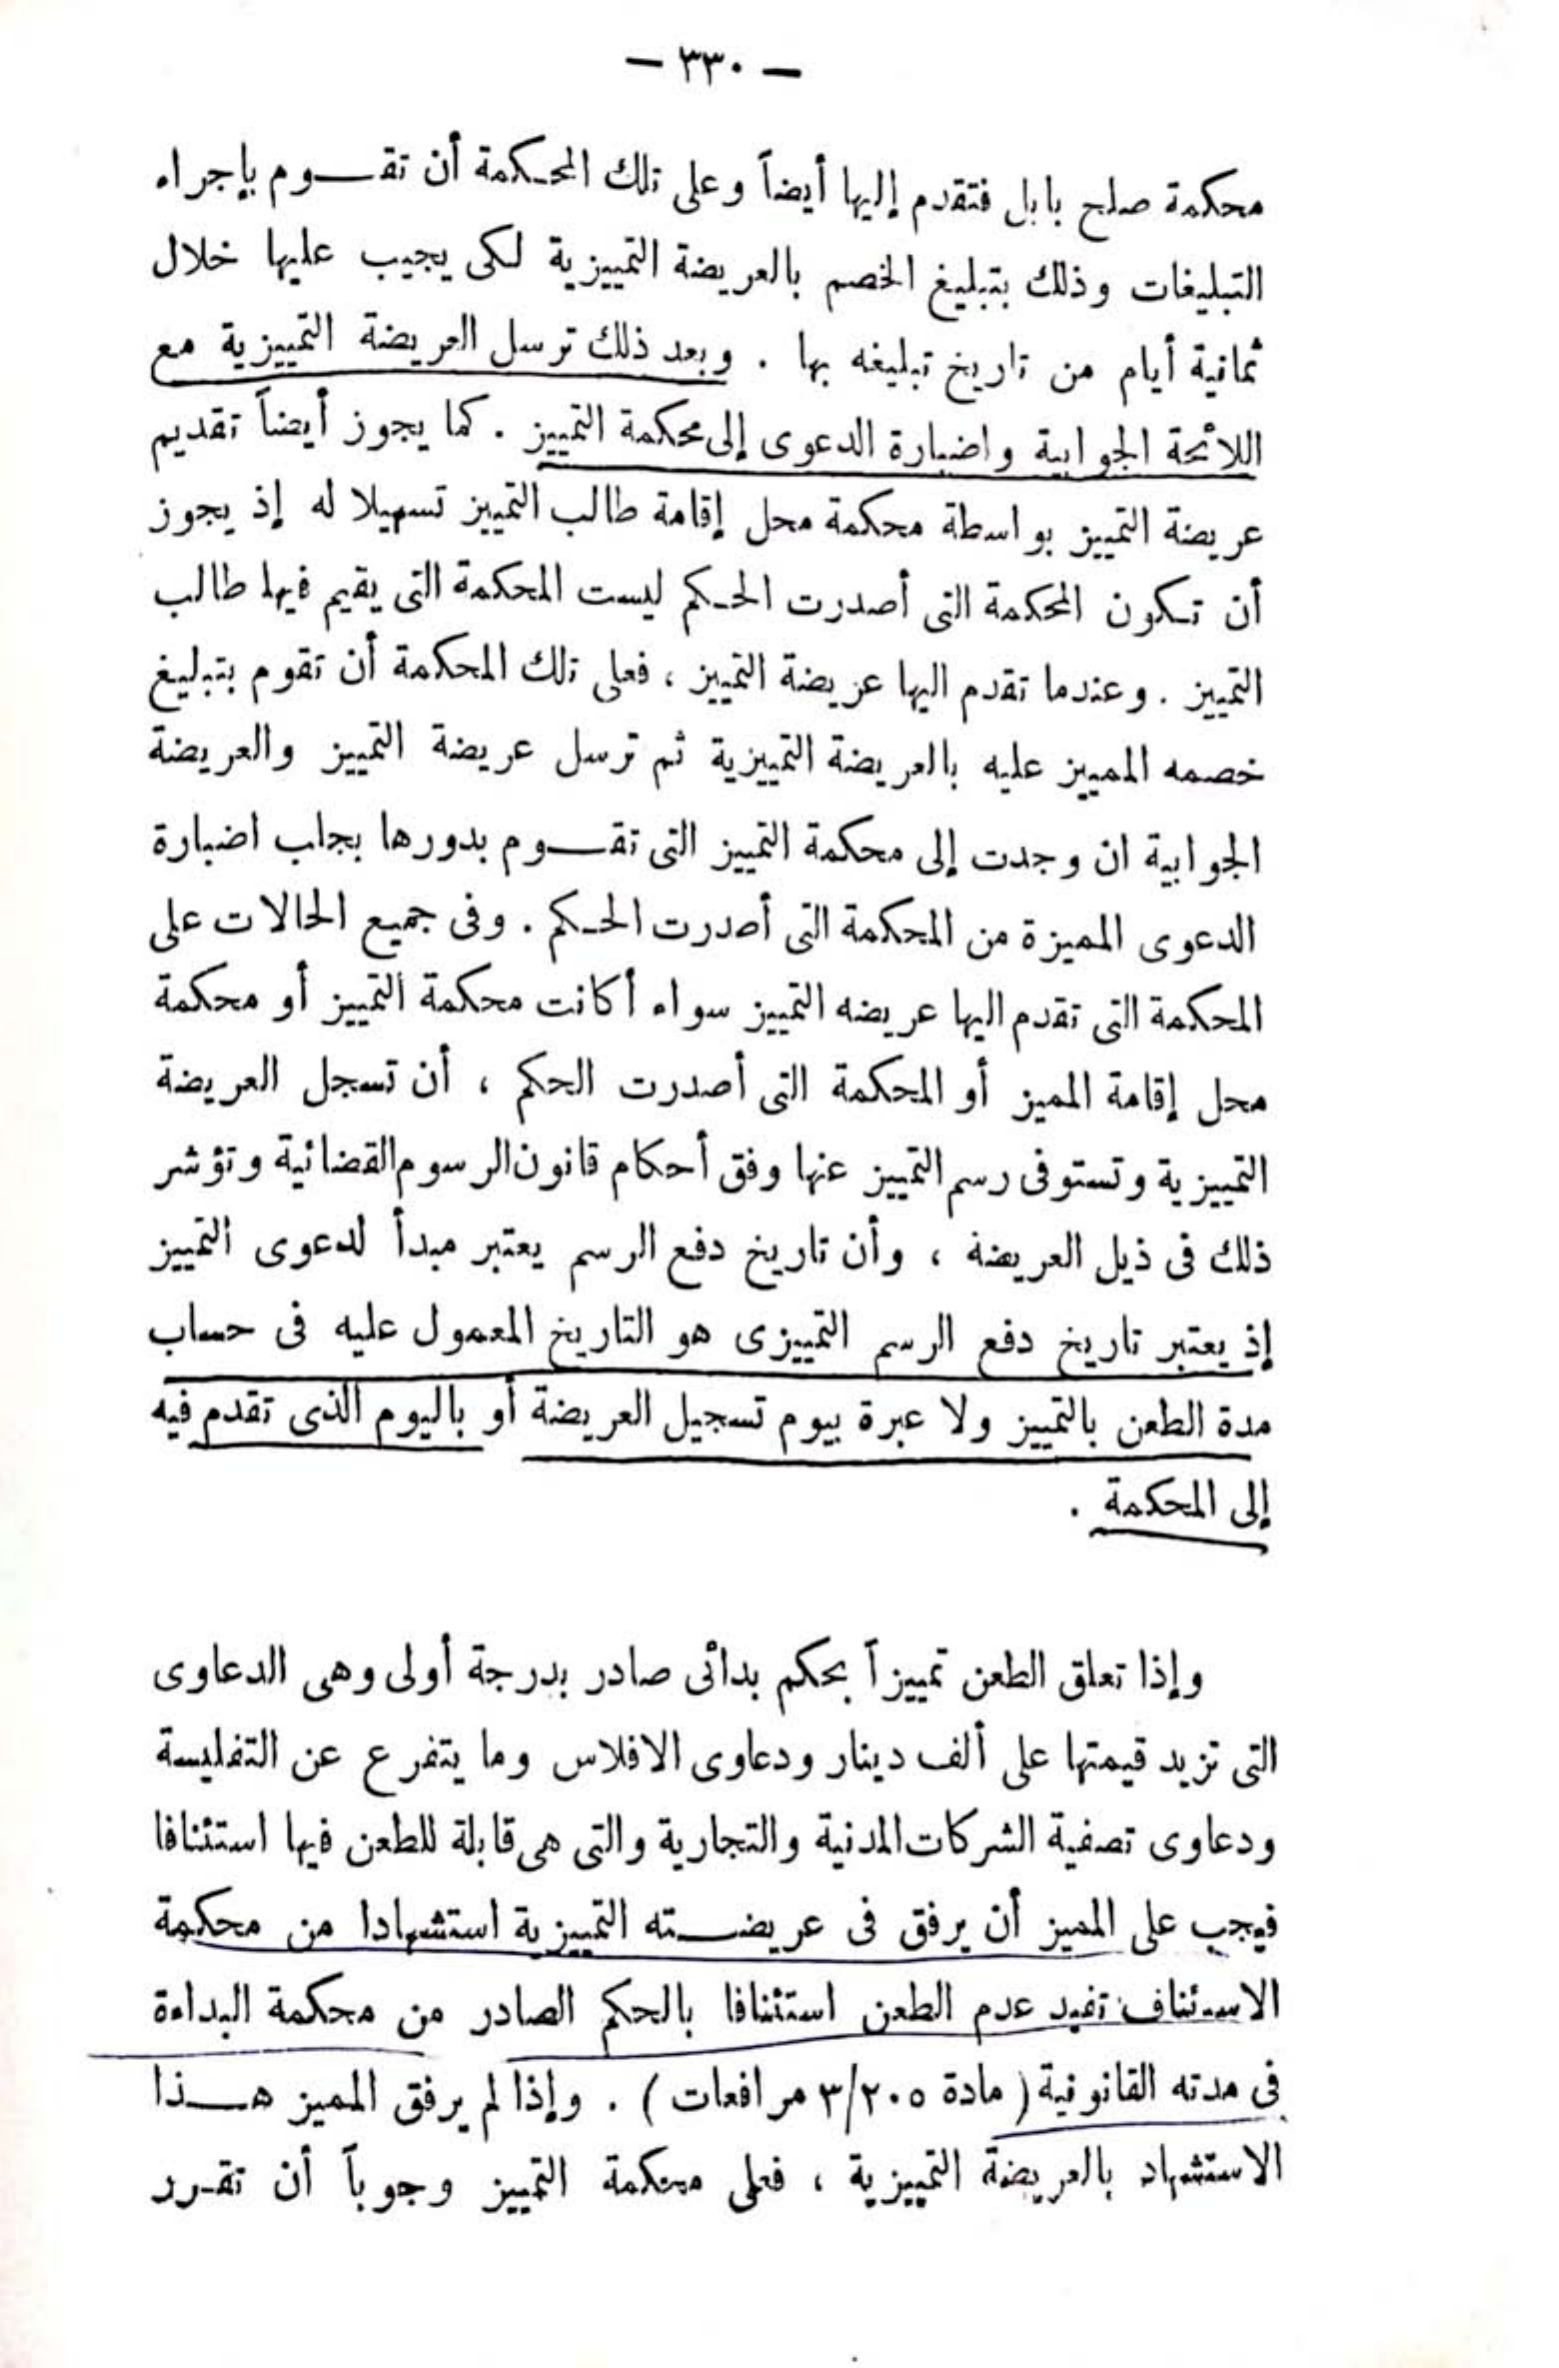 — ٣٣٠ —
محكمة صلح بابل فتقدم إليها أيضاً وعلى تلك المحكمة أن تقوم بإجراء
التبليغات وذلك بتبليغ الخصم بالعريضة التمييزية لكى يجيب عليها خلال
ثمانية أيام من تاريخ تبليغه بها . وبعد ذلك ترسل العريضة التمييزية مع
اللائحة الجوابية واضبارة الدعوى إلى محكمة التمييز . كما يجوز أيضاً تقديم
عريضة التمييز بواسطة محكمة محل إقامة طالب التمييز تسهيلا له إذ يجوز
أن تكون المحكمة التى أصدرت الحكم ليست المحكمة التى يقيم فيها طالب
التمييز . وعندما تقدم اليها عريضة التمييز ، فعلى تلك المحكمة أن تقوم بتبليغ
خصمه المميز عليه بالعريضة التمييزية ثم ترسل عريضة التمييز والعريضة
الجوابية ان وجدت إلى محكمة التمييز التى تقوم بدورها بجلب اضبارة
الدعوى المميزة من المحكمة التى أصدرت الحكم . وفى جميع الحالات على
المحكمة التى تقدم اليها عريضه التمييز سواء أكانت محكمة التمييز أو محكمة
محل إقامة المميز أو المحكمة التى أصدرت الحكم ، أن تسجل العريضة
التمييزية وتستوفى رسم التمييز عنها وفق أحكام قانون الرسوم القضائية وتؤشر
ذلك فى ذيل العريضة ، وأن تاريخ دفع الرسم يعتبر مبدأ لدعوى التمييز
إذ يعتبر تاريخ دفع الرسم التمييزى هو التاريخ المعمول عليه فى حساب
مدة الطعن بالتمييز ولا عبرة بيوم تسجيل العريضة أو باليوم الذى تقدم فيه
إلى المحكمة .
وإذا تعلق الطعن تمييزاً بحكم بدائى صادر بدرجة أولى وهى الدعاوى
التى تزيد قيمتها على ألف دينار ودعاوى الافلاس وما يتفرع عن التفليسة
ودعاوى تصفية الشركات المدنية والتجارية والتى هى قابلة للطعن فيها استئنافا
فيجب على المميز أن يرفق فى عريضته التمييزية استشهادا من محكمة
الاستئناف تفيد عدم الطعن استئنافا بالحكم الصادر من محكمة البداءة
فى مدته القانونية ( مادة ٣/٢٠٥ مرافعات ) . وإذا لم يرفق المميز هذا
الاستشهاد بالعريضة التمييزية ، فعلى محكمة التمييز وجوباً أن تقرر